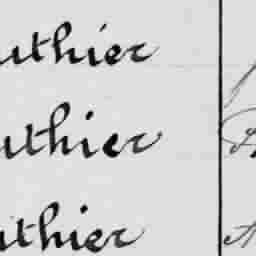 uthier
uthier
uthier